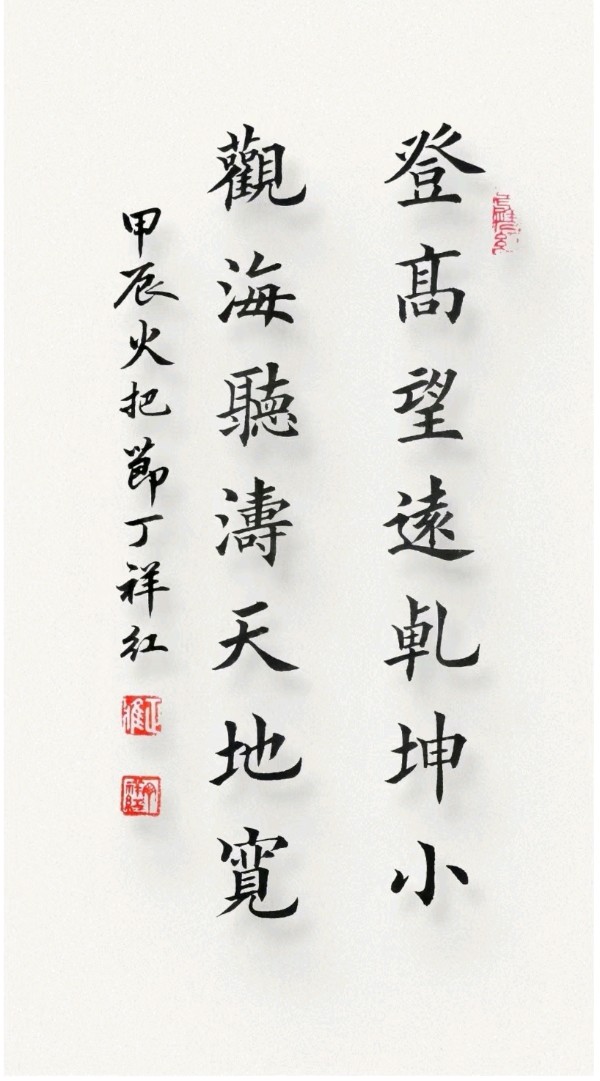 登髙望遠乹坤小
觀海聽濤天地寛
甲辰火把節丁祥红